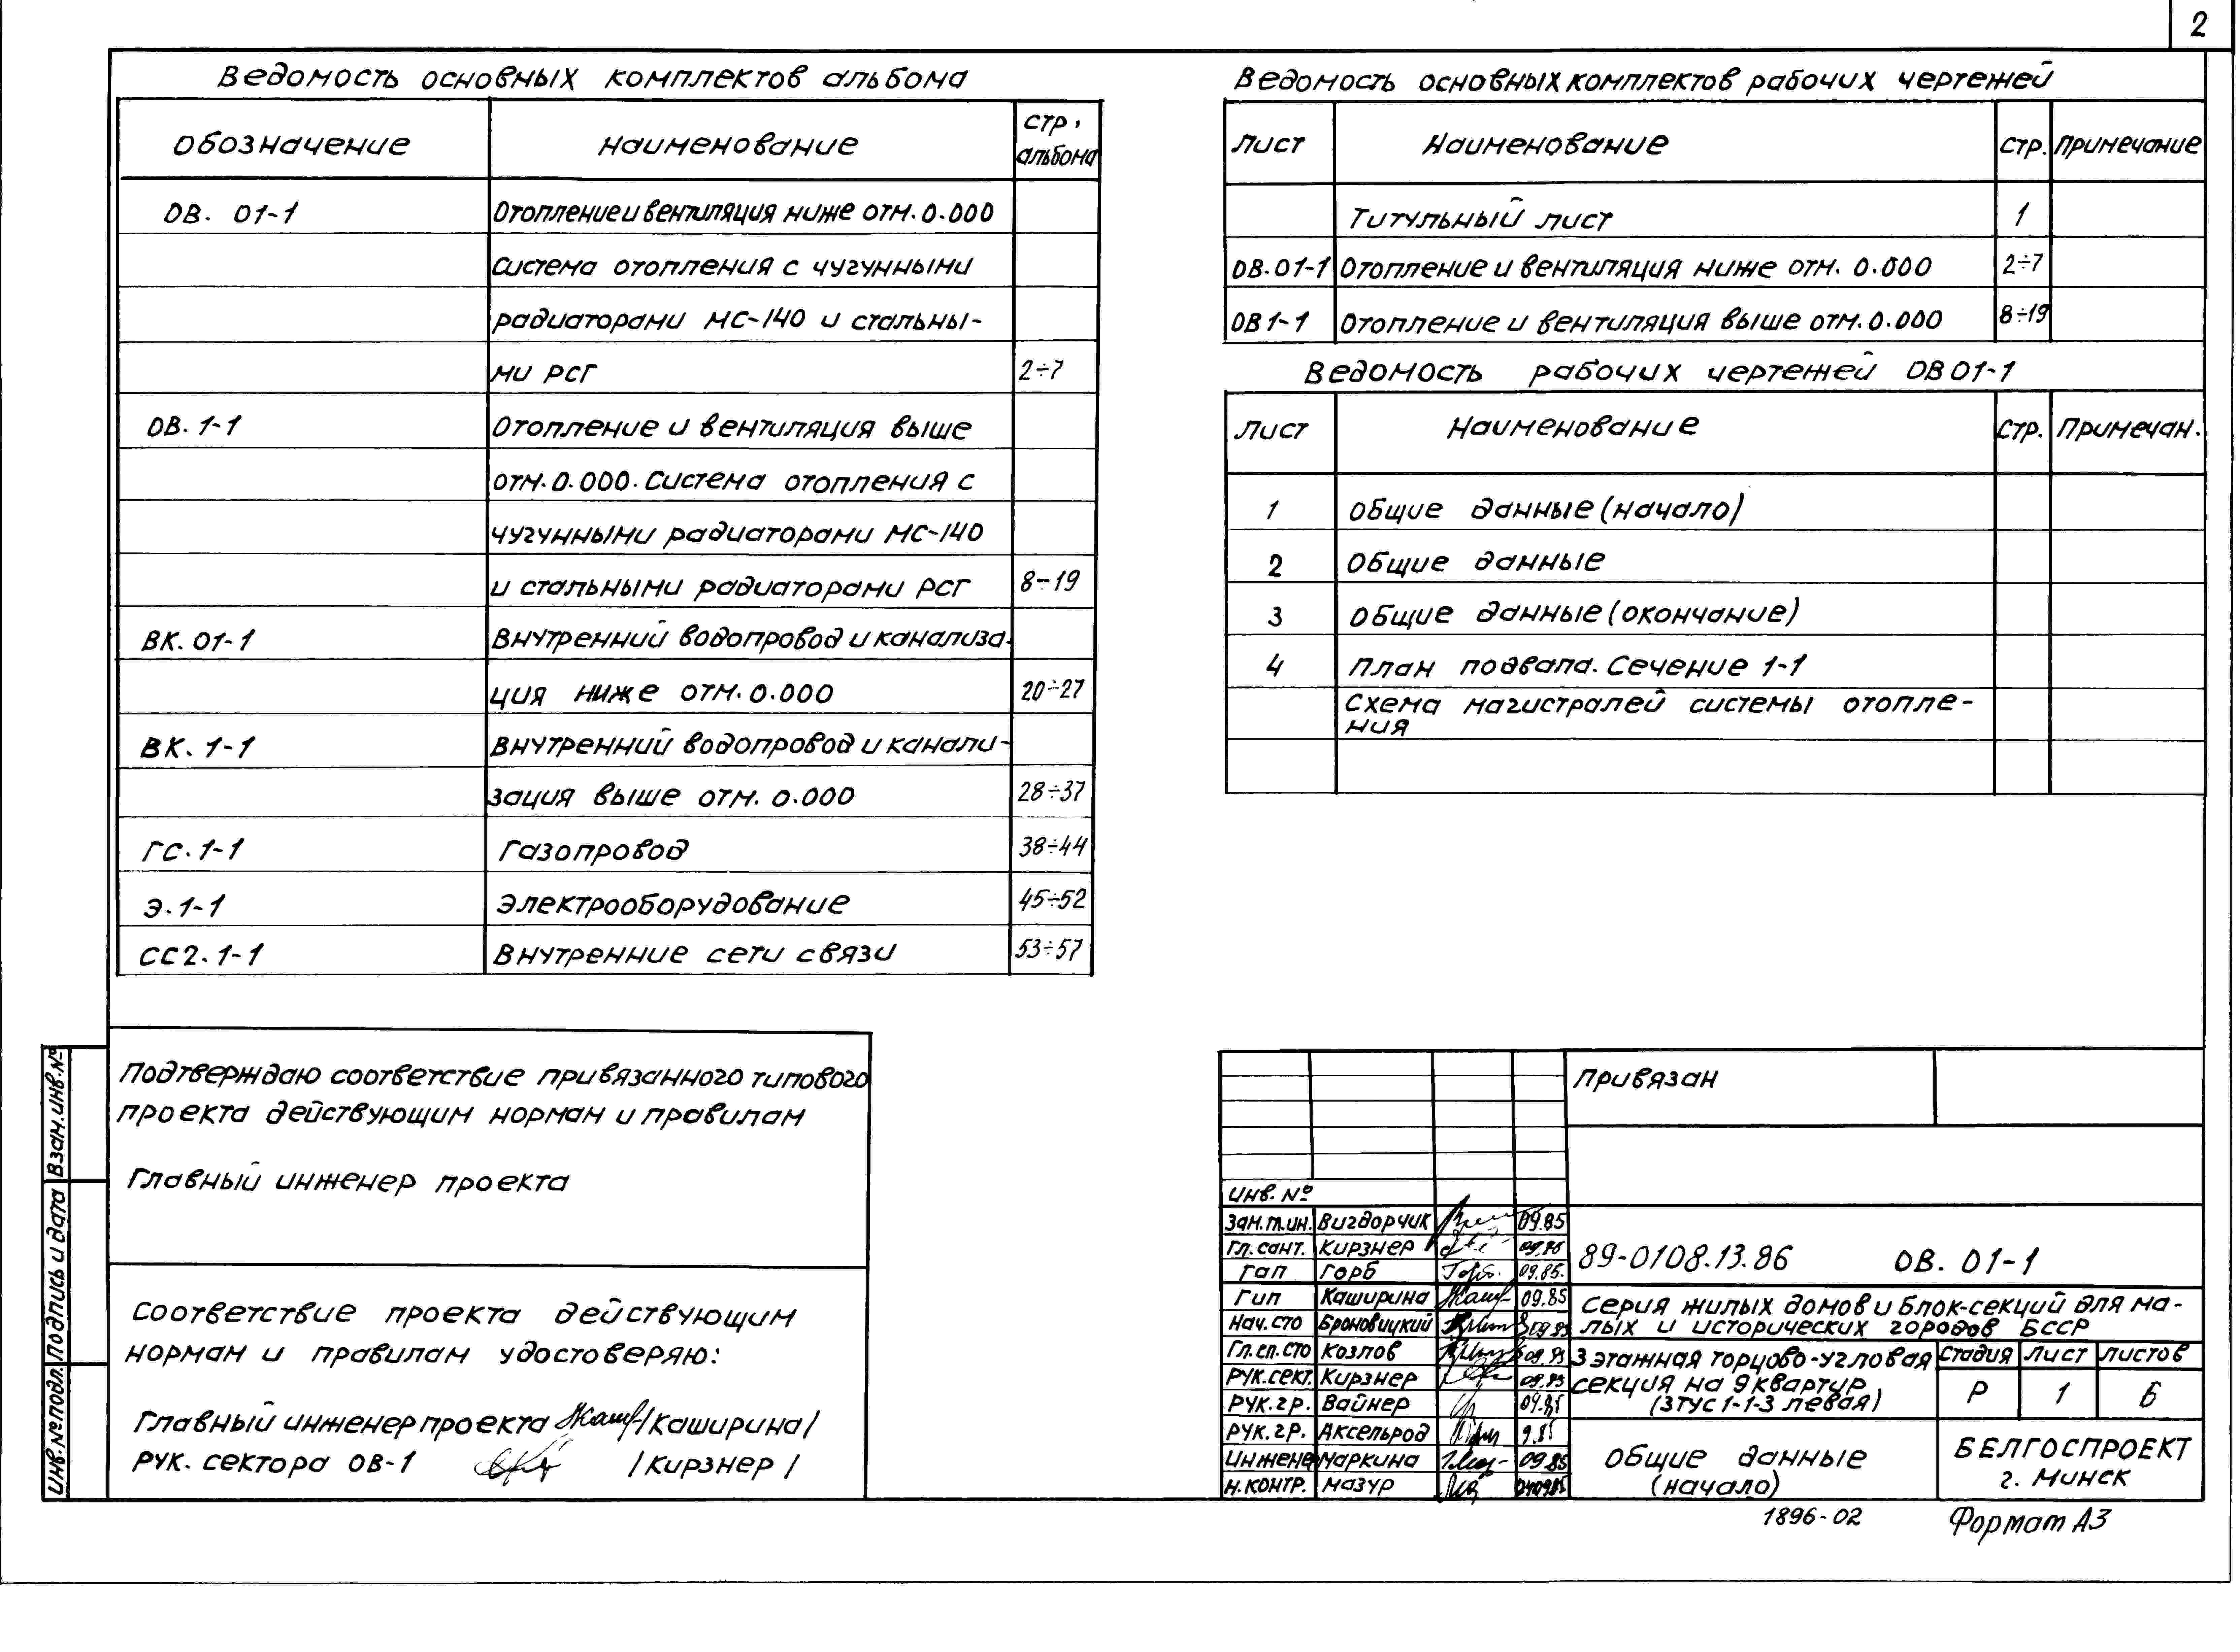 2
Ведомость основных комплектов альбома
Обозначение Наименование стр. альбома
ОВ. 01-1 Отопление и вентиляция ниже отм. 0.000
Система отопления с чугунными
радиаторами МС-140 и стальны-
ми РСГ 2÷7
ОВ. 1-1 Отопление и вентиляция выше
отм. 0.000. Система отопления с
чугунными радиаторами МС-140
и стальными радиаторами РСГ 8÷19
ВК. 01-1 Внутренний водопровод и канализа-
ция ниже отм. 0.000 20÷27
ВК. 1-1 Внутренний водопровод и канали-
зация выше отм. 0.000 28÷37
ГС. 1-1 Газопровод 38÷44
Э. 1-1 Электрооборудование 45÷52
СС2. 1-1 Внутренние сети связи 53÷57
Ведомость основных комплектов рабочих чертежей
Лист Наименование Стр. Примечание
Титульный лист 1
ОВ. 01-1 Отопление и вентиляция ниже отм. 0.000 2÷7
ОВ 1-1 Отопление и вентиляция выше отм. 0.000 8÷19
Ведомость рабочих чертежей ОВ 01-1
Лист Наименование Стр. Примечан.
1 Общие данные (начало)
2 Общие данные
3 Общие данные (окончание)
4 План подвала. Сечение 1-1
Схема магистралей системы отопле-
ния
Подтверждаю соответствие привязанного типового
проекта действующим нормам и правилам
Главный инженер проекта
Соответствие проекта действующим
нормам и правилам удостоверяю:
Главный инженер проекта /Каширина/
Рук. сектора ОВ-1 /Кирзнер/
Взам. инв. №
Подпись и дата
Инв. № подл.
Привязан
Инв. №
Зам. т. ин. Вигдорчик 09.85
Гл. сант. Кирзнер
ГАП Горб 09.85.
ГИП Каширина 09.85
Нач. СТО Броновицкий
Гл. сп. СТО Козлов
Рук. сект. Кирзнер
Рук. гр. Вайнер
Рук. гр. Аксельрод 9.85
Инжене Маркина 09.85
Н. контр. Мазур
89-0108.13.86 ОВ. 01-1
Серия жилых домов и блок-секций для ма-
лых и исторических городов БССР
3 этажная торцово-угловая
секция на 9 квартир
(3ТУС 1-1-3 левая)
Стадия Лист Листов
Р 1 6
Общие данные
(начало)
БЕЛГОСПРОЕКТ
г. Минск
1896-02 Формат А3